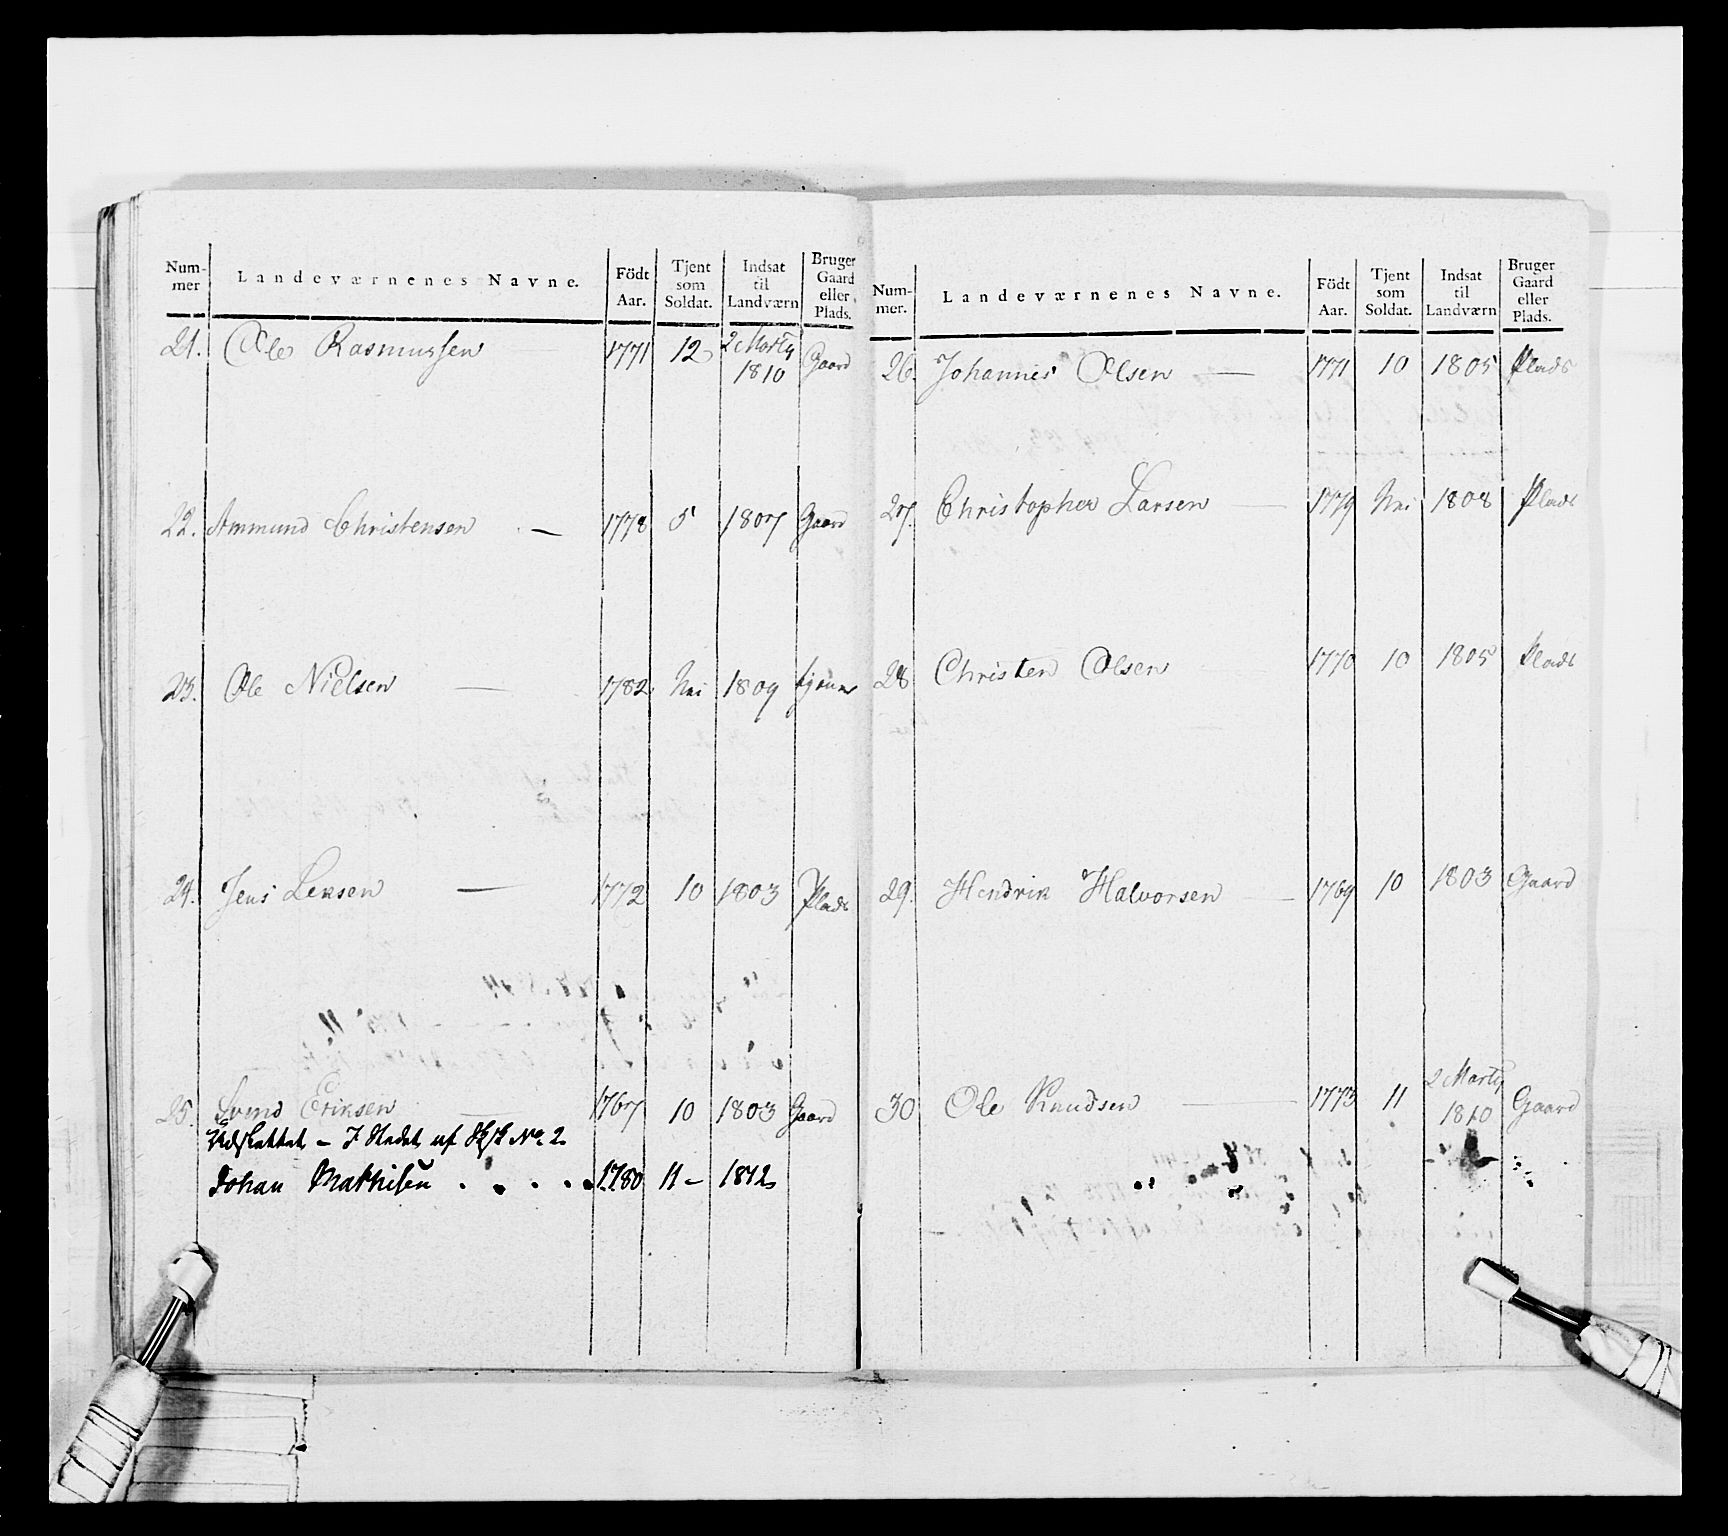 Num-
mer
Landeværnenes Navne.
Födt
Aar.
Tjent
som
Soldat.
Indsat
til
Landværn
Bruger
Gaard
eller
Plads.
21. Ole Rasmussen 1771 12 2 Marty 1810 Gaard
22. Ammund Christensen — 1778 5 1807 Gaard
23. Ole Nielsen — 1782 Nei 1809 tjener
24. Jens Larsen — 1772 10 1803 Plads
25. Svend Eriksen — 1767 10 1803 Gaard
Udslettet – I Stedet af No. 2
Johan Mathisen . . . . . 1780 11 – 1812
Num-
mer.
Landeværnenes Navne.
Födt
Aar.
Tjent
som
Soldat.
Indsat
til
Landværn
Bruger
Gaard
eller
Plads.
26. Johannes Olsen — 1771 10 1805 Plads
27. Christopher Larsen — 1779 Nei 1808 Plads
28 Christen Olsen 1770 10 1805 Plads
29. Hendrik Halvorsen — 1769 10 1803 Gaard
30 Ole Knudsen — 1773 11 2 Marty 1810 Gaard